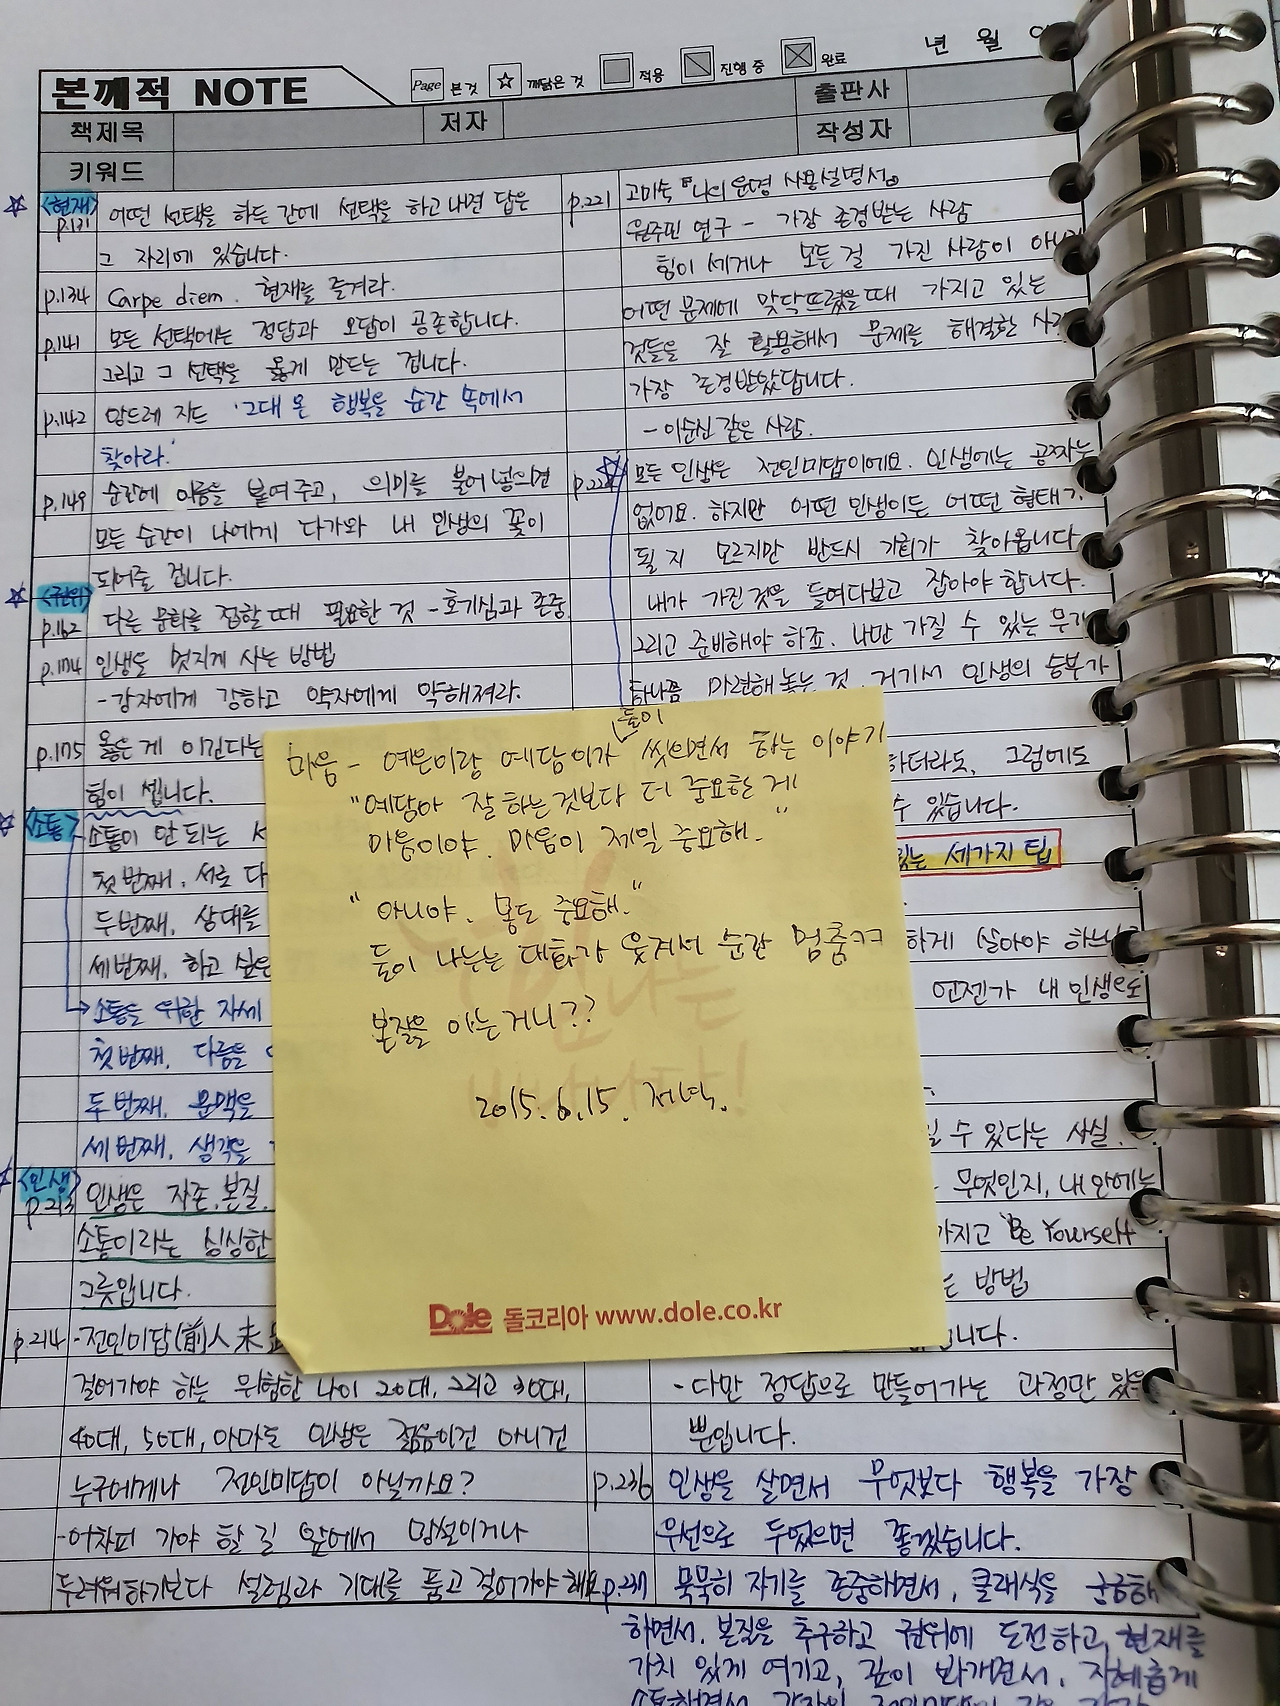 년 월
본깨적 NOTE
Page 본것 ☆ 깨닫은 것 적용 진행 중 완료
책제목 저자 출판사
작성자
키워드
<현재>
p.131 어떤 선택을 하든 간에 선택을 하고 내면 답은
그 자리에 있습니다.
p.134 Carpe diem. 현재를 즐겨라.
p.141 모든 선택에는 정답과 오답이 공존합니다.
그리고 그 선택을 옳게 만드는 겁니다.
p.142 앙드레 지드 '그대 온 행복을 순간 속에서
찾아라.'
p.149 순간에 이름을 붙여주고, 의미를 불어넣으면
모든 순간이 나에게 다가와 내 인생의 꽃이
되어줄 겁니다.
<권위>
p.162 다른 문화를 접할 때 필요한 것 - 호기심과 존중
p.174 인생을 멋지게 사는 방법
- 강자에게 강하고 약자에게 약해져라.
p.175 옳은 게 이긴다는
힘이 셉니다.
<소통> 소통이 안 되는
첫 번째, 서로 다
두 번째, 상대를
세 번째, 하고 싶은
→ 소통을 위한 자세
첫 번째, 다름을
두 번째, 문맥을
세 번째, 생각을
<인생>
p.213 인생은 자존, 본질,
소통이라는 싱싱한
그릇입니다.
p.214 - 전인미답(前人未
걸어가야 하는 위험한 나이 20대, 그리고 30대,
40대, 50대, 아마도 인생은 젊음이건 아니건
누구에게나 전인미답이 아닐까요?
- 어차피 가야 할 길 앞에서 망설이거나
두려워하기보다 설렘과 기대를 품고 걸어가야 해요
p.221 고미숙 『나의 운명 사용설명서』
원주민 연구 - 가장 존경받는 사람
힘이 세거나 모든 걸 가진 사람이 아니라
어떤 문제에 맞닥뜨렸을 때 가지고 있는
것들을 잘 활용해서 문제를 해결한
가장 존경받았답니다.
- 이순신 같은 사람.
모든 인생은 전인미답이에요. 인생에는 공짜는
없어요. 하지만 어떤 인생이든 어떤 형태가
될 지 모르지만 반드시 기회가 찾아옵니다
내가 가진 것을 들여다보고 잡아야 합니다.
그리고 준비해야 하죠. 나만 가질 수 있는 무기
하나쯤 마련해 놓는 것, 거기서 인생의 승부가
하더라도, 그럼에도
수 있습니다.
있는 세가지 팁
하게 살아야 하는
언젠가 내 인생도
수 있다는 사실.
무엇인지, 내 안에는
가지고 'Be Yourself
는 방법
니다.
- 다만 정답으로 만들어가는 과정만 있을
뿐입니다.
p.236 인생을 살면서 무엇보다 행복을 가장
우선으로 두었으면 좋겠습니다.
p.237 묵묵히 자기를 존중하면서, 클래식을 궁금해
하면서, 본질을 추구하고 권위에 도전하고, 현재를
가치 있게 여기고, 깊이 봐가면서, 지혜롭게
둘이
마음 - 예은이랑 예담이가 씻으면서 하는 이야기
"예담아 잘 하는것보다 더 중요한 게
마음이야. 마음이 제일 중요해."
"아니야. 몸도 중요해."
둘이 나누는 대화가 웃겨서 순간 멈춤ㅋㅋ
본질을 아는거니??
2015.6.15. 저녁.
Dole 돌코리아 www.dole.co.kr